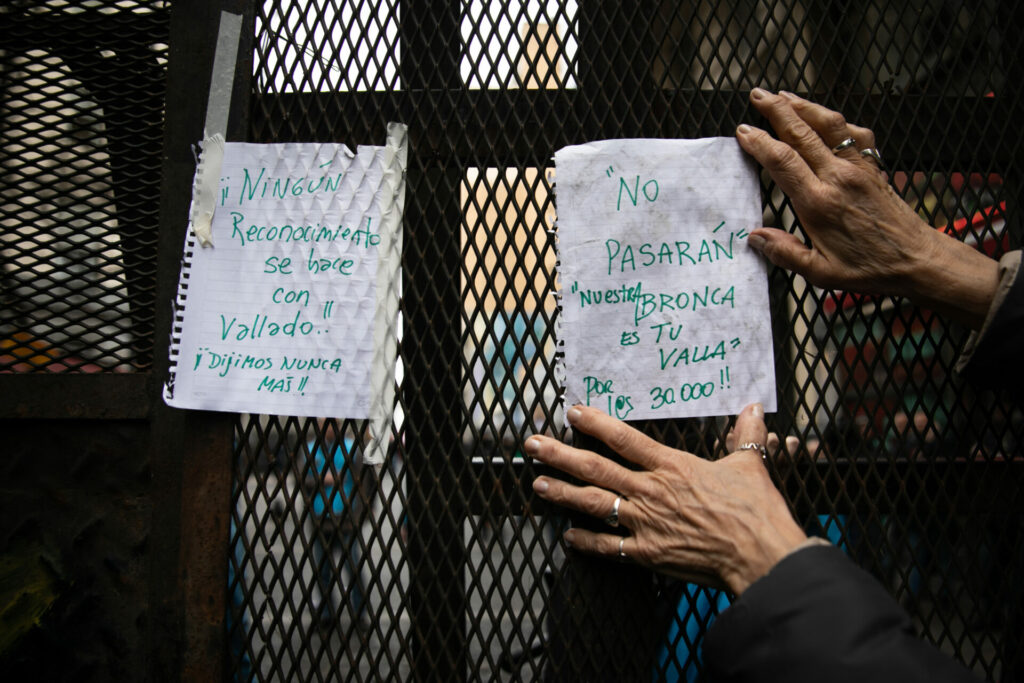 ¡¡NINGÚN
Reconocimiento
se hace
con
Vallado!!
¡¡Dijimos NUNCA
MAS!!
"NO
PASARÁN"
"NUESTRA BRONCA
ES TU
VALLA"
POR
l@s 30.000!!